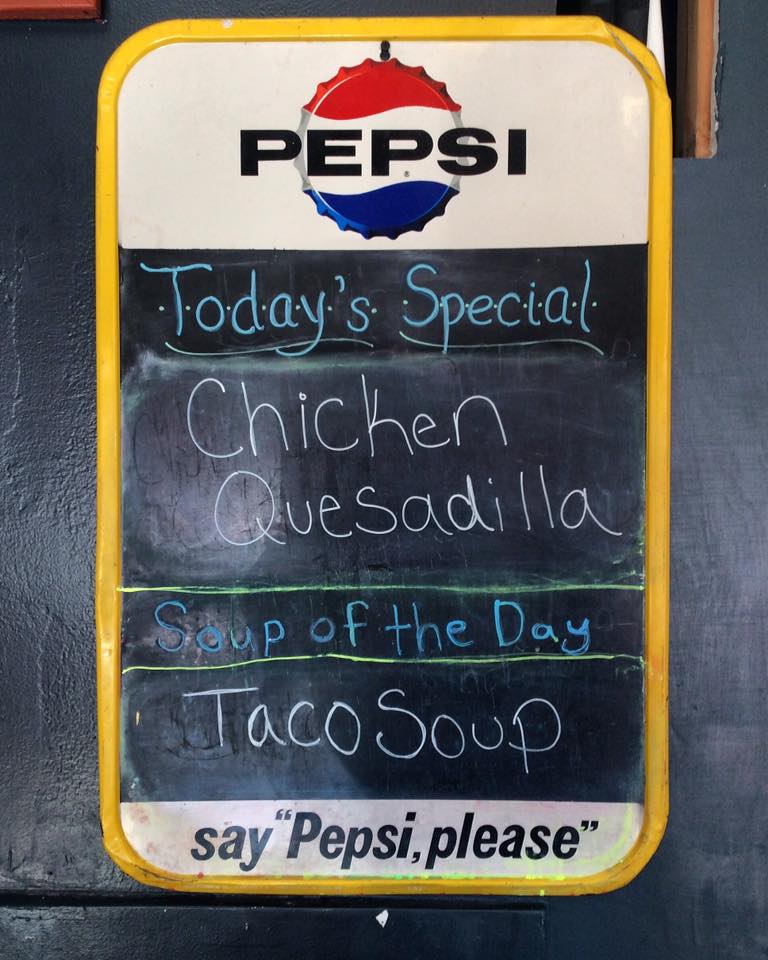 PEPSI
Today's Special
Chicken
Quesadilla
Soup of the Day
Taco Soup
say "Pepsi, please"